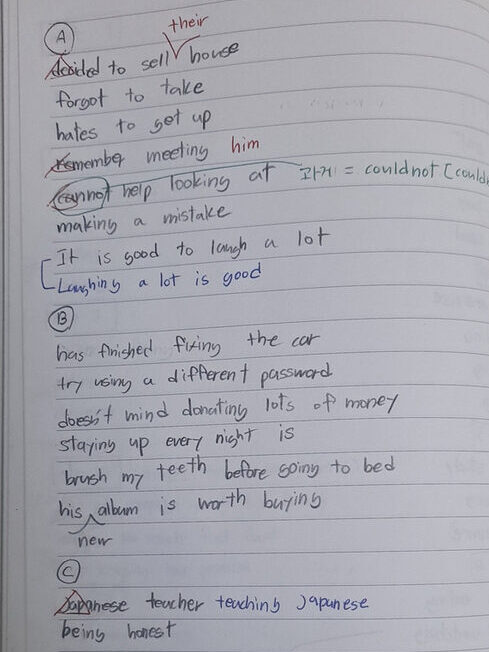 A
their
decided to sell house
forgot to take
hates to get up
remember meeting him
cannot help looking at 과거 = couldnot [could
making a mistake
It is good to laugh a lot
Laughing a lot is good
B
has finished fixing the car
try using a different password
doesn't mind donating lots of money
staying up every night is
brush my teeth before going to bed
his album is worth buying
new
C
Japanese teacher teaching Japanese
being honest